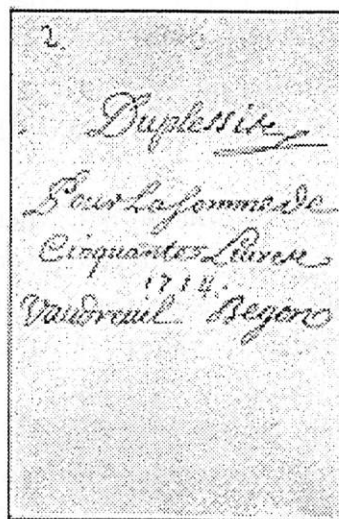 2.
Duplessis
Pour La somme de
Cinquantes Livres
1714.
Vaudreuil Begon